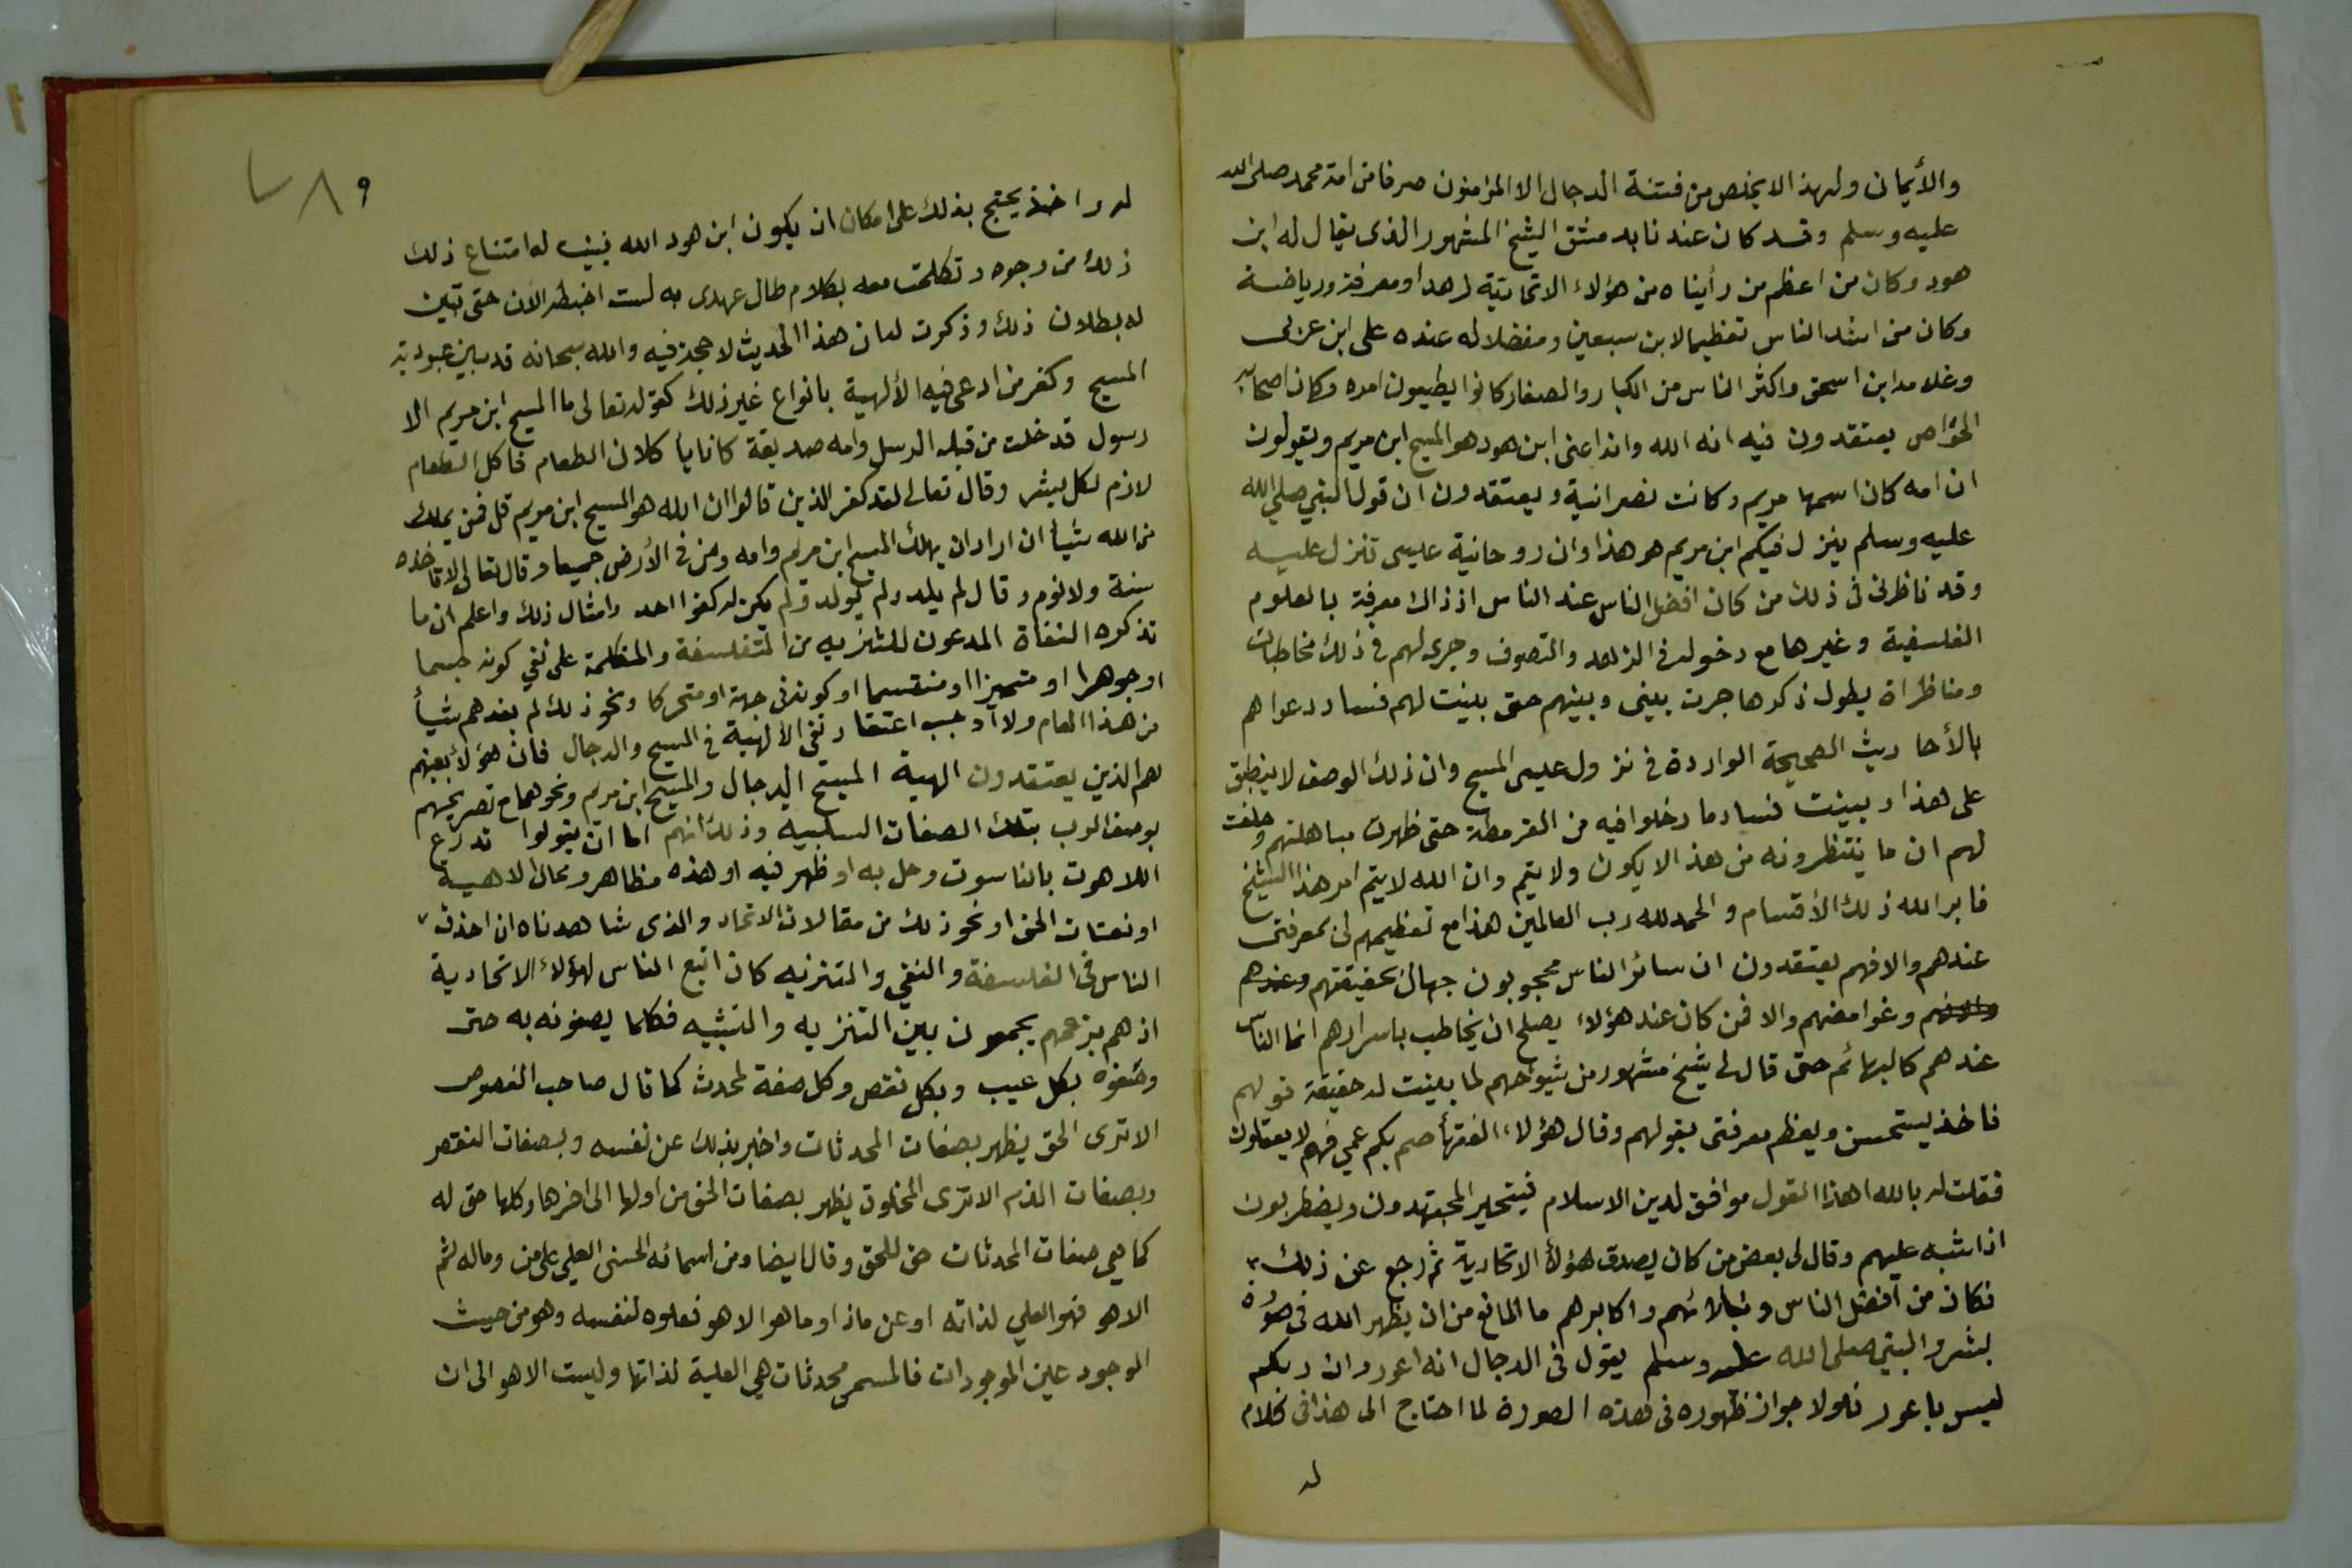 والأيمان ولهذا لا يخلص من فتنة الدجال الا المؤمنون صرفا من امة محمد صلى الله
عليه وسلم وقد كان عندنا بدمشق الشيخ المشهور الذى يقال له ابن
هود وكان من اعظم من رأيناه من هؤلاء الاتحادية زهدا ومعرفة ورياضة
وكان من اشد الناس تعظيما لابن سبعين ومفضلا له عنده على ابن عربى
وغلامه ابن اسحق واكثر الناس من الكبار والصغار كانوا يطيعون امره وكان اصحابه
الخواص يعتقدون فيه انه الله وانه اعنى ابن هود هو المسيح ابن مريم ويقولون
ان امه كان اسمها مريم وكانت نصرانية ويعتقدون ان قول النبي صلى الله
عليه وسلم ينزل فيكم ابن مريم هو هذا وان روحانية عيسى تنزل عليه
وقد ناظرنى فى ذلك من كان افضل الناس عند الناس اذ ذاك معرفة بالعلوم
الفلسفية وغيرها مع دخوله فى الزهد والتصوف وجرى لهم فى ذلك مخاطبات
ومناظراة يطول ذكرها جرت بينى وبينهم حتى بينت لهم فساد دعواهم
بالأحاديث الصحيحة الواردة فى نزول عيسى المسيح وان ذلك الوصف لا ينطبق
على هذا وبينت فساد ما دخلوا فيه من القرمطة حتى ظهرت مباهلتهم وحلفت
لهم ان ما ينتظرونه من هذا لا يكون ولا يتم وان الله لا يتم امر هذا الشيخ
فابر الله ذلك الأقسام والحمد لله رب العالمين هذا مع تعظيمهم لى بمعرفتى
عندهم والا فهم يعتقدون ان سائر الناس محجوبون جهال بحقيقتهم وعندهم
وغوامضهم والا فمن كان عند هؤلاء يصلح ان يخاطب باسرارهم انما الناس
عندهم كالبهائم حتى قال لى شيخ مشهور من شيوخهم لما بينت له حقيقة قولهم
فاخذ يستحسن ويعظم معرفتى بقولهم وقال هؤلاء الفقهأ صم بكم عمي فهم لا يعقلون
فقلت له بالله اهذا القول موافق لدين الاسلام فيتحير المجتهدون ويضطربون
اذا شبه عليهم وقال لى بعض من كان يصدق هؤلأ الاتحادية ثم رجع عن ذلك
فكان من افضل الناس ونبلائهم واكابرهم ما المانع من ان يظهر الله فى صورة
بشر والنبي صلى الله عليه وسلم يقول فى الدجال انه اعور وان ربكم
ليس باعور فلولا جواز ظهوره فى هذه الصورة لما احتاج الى هذا فى كلام
له
٧٨٩
له واخذ يحتج بذلك على امكان ان يكون ابن هود الله فبينت له امتناع ذلك
ذلك من وجوه وتكلمت معه بكلام طال عهدى به لست اضبطه الان حتى تبين
له بطلان ذلك وذكرت له ان هذا الحديث لا حجة فيه والله سبحانه قد بين عبودية
المسيح وكفر من ادعى فيه الألهية بانواع غير ذلك كقوله تعالى ما المسيح ابن مريم الا
رسول قد خلت من قبله الرسل وامه صديقة كانا يأكلان الطعام فاكل الطعام
لازم لكل بشر وقال تعالى لقد كفر الذين قالوا ان الله هو المسيح ابن مريم قل فمن يملك
من الله شيأ ان اراد ان يهلك المسيح ابن مريم وامه ومن فى الأرض جميعا وقال تعالى لا تاخذه
سنة ولا نوم وقال لم يلد ولم يولد ولم يكن له كفوا احد وامثال ذلك واعلم ان ما
تذكره النفاة المدعون للتنزيه من المتفلسفة والمتكلمة على نفي كونه جسما
او جوهرا او متحيزا او منقسما او كونه فى جهة او متحركا ونحو ذلك لم يفدهم شيأ
من هذا المعام ولا اوجب اعتقاد نفي الألهية فى المسيح والدجال فان هؤلأ بعينهم
هم الذين يعتقدون الهية المسيح الدجال والمسيح ابن مريم ونحوهما مع تصريحهم
بوصف الرب بتلك الصفات السلبية وذلك انهم اما ان يقولوا تدرع
اللاهوت بالناسوت وحل به او ظهر فيه او هذه مظاهر ومحال لاهية
او نعتات الحق او نحو ذلك من مقالات الاتحاد والذى شاهدناه ان احذق
الناس فى الفلسفة والنفي والمتنزيه كان اتبع الناس لهؤلاء الاتحادية
اذ هم بزعمهم يجمعون بين التنزيه والتشبيه فكانما يصفونه به حتى
وصفوه بكل عيب وبكل نقص وكل صفة لمحدث كما قال صاحب الفصوص
الا ترى الحق يظهر بصفات المحدثات واخبر بذلك عن نفسه وبصفات النقص
وبصفات الذم الا ترى المخلوق يظهر بصفات الحق من اولها الى اخرها وكلها حق له
كما هي صفات المحدثات حق للحق وقال ايضا ومن اسمائه الحسنى العلي على من وما له ثم
الا هو فهو العلي لذاته او عن ماذا وما هو الا هو فعلوه لنفسه وهو من حيث
الوجود عين الموجودات فالمسمى محدثات هي العلية لذاتها وليست الا هو الى ان